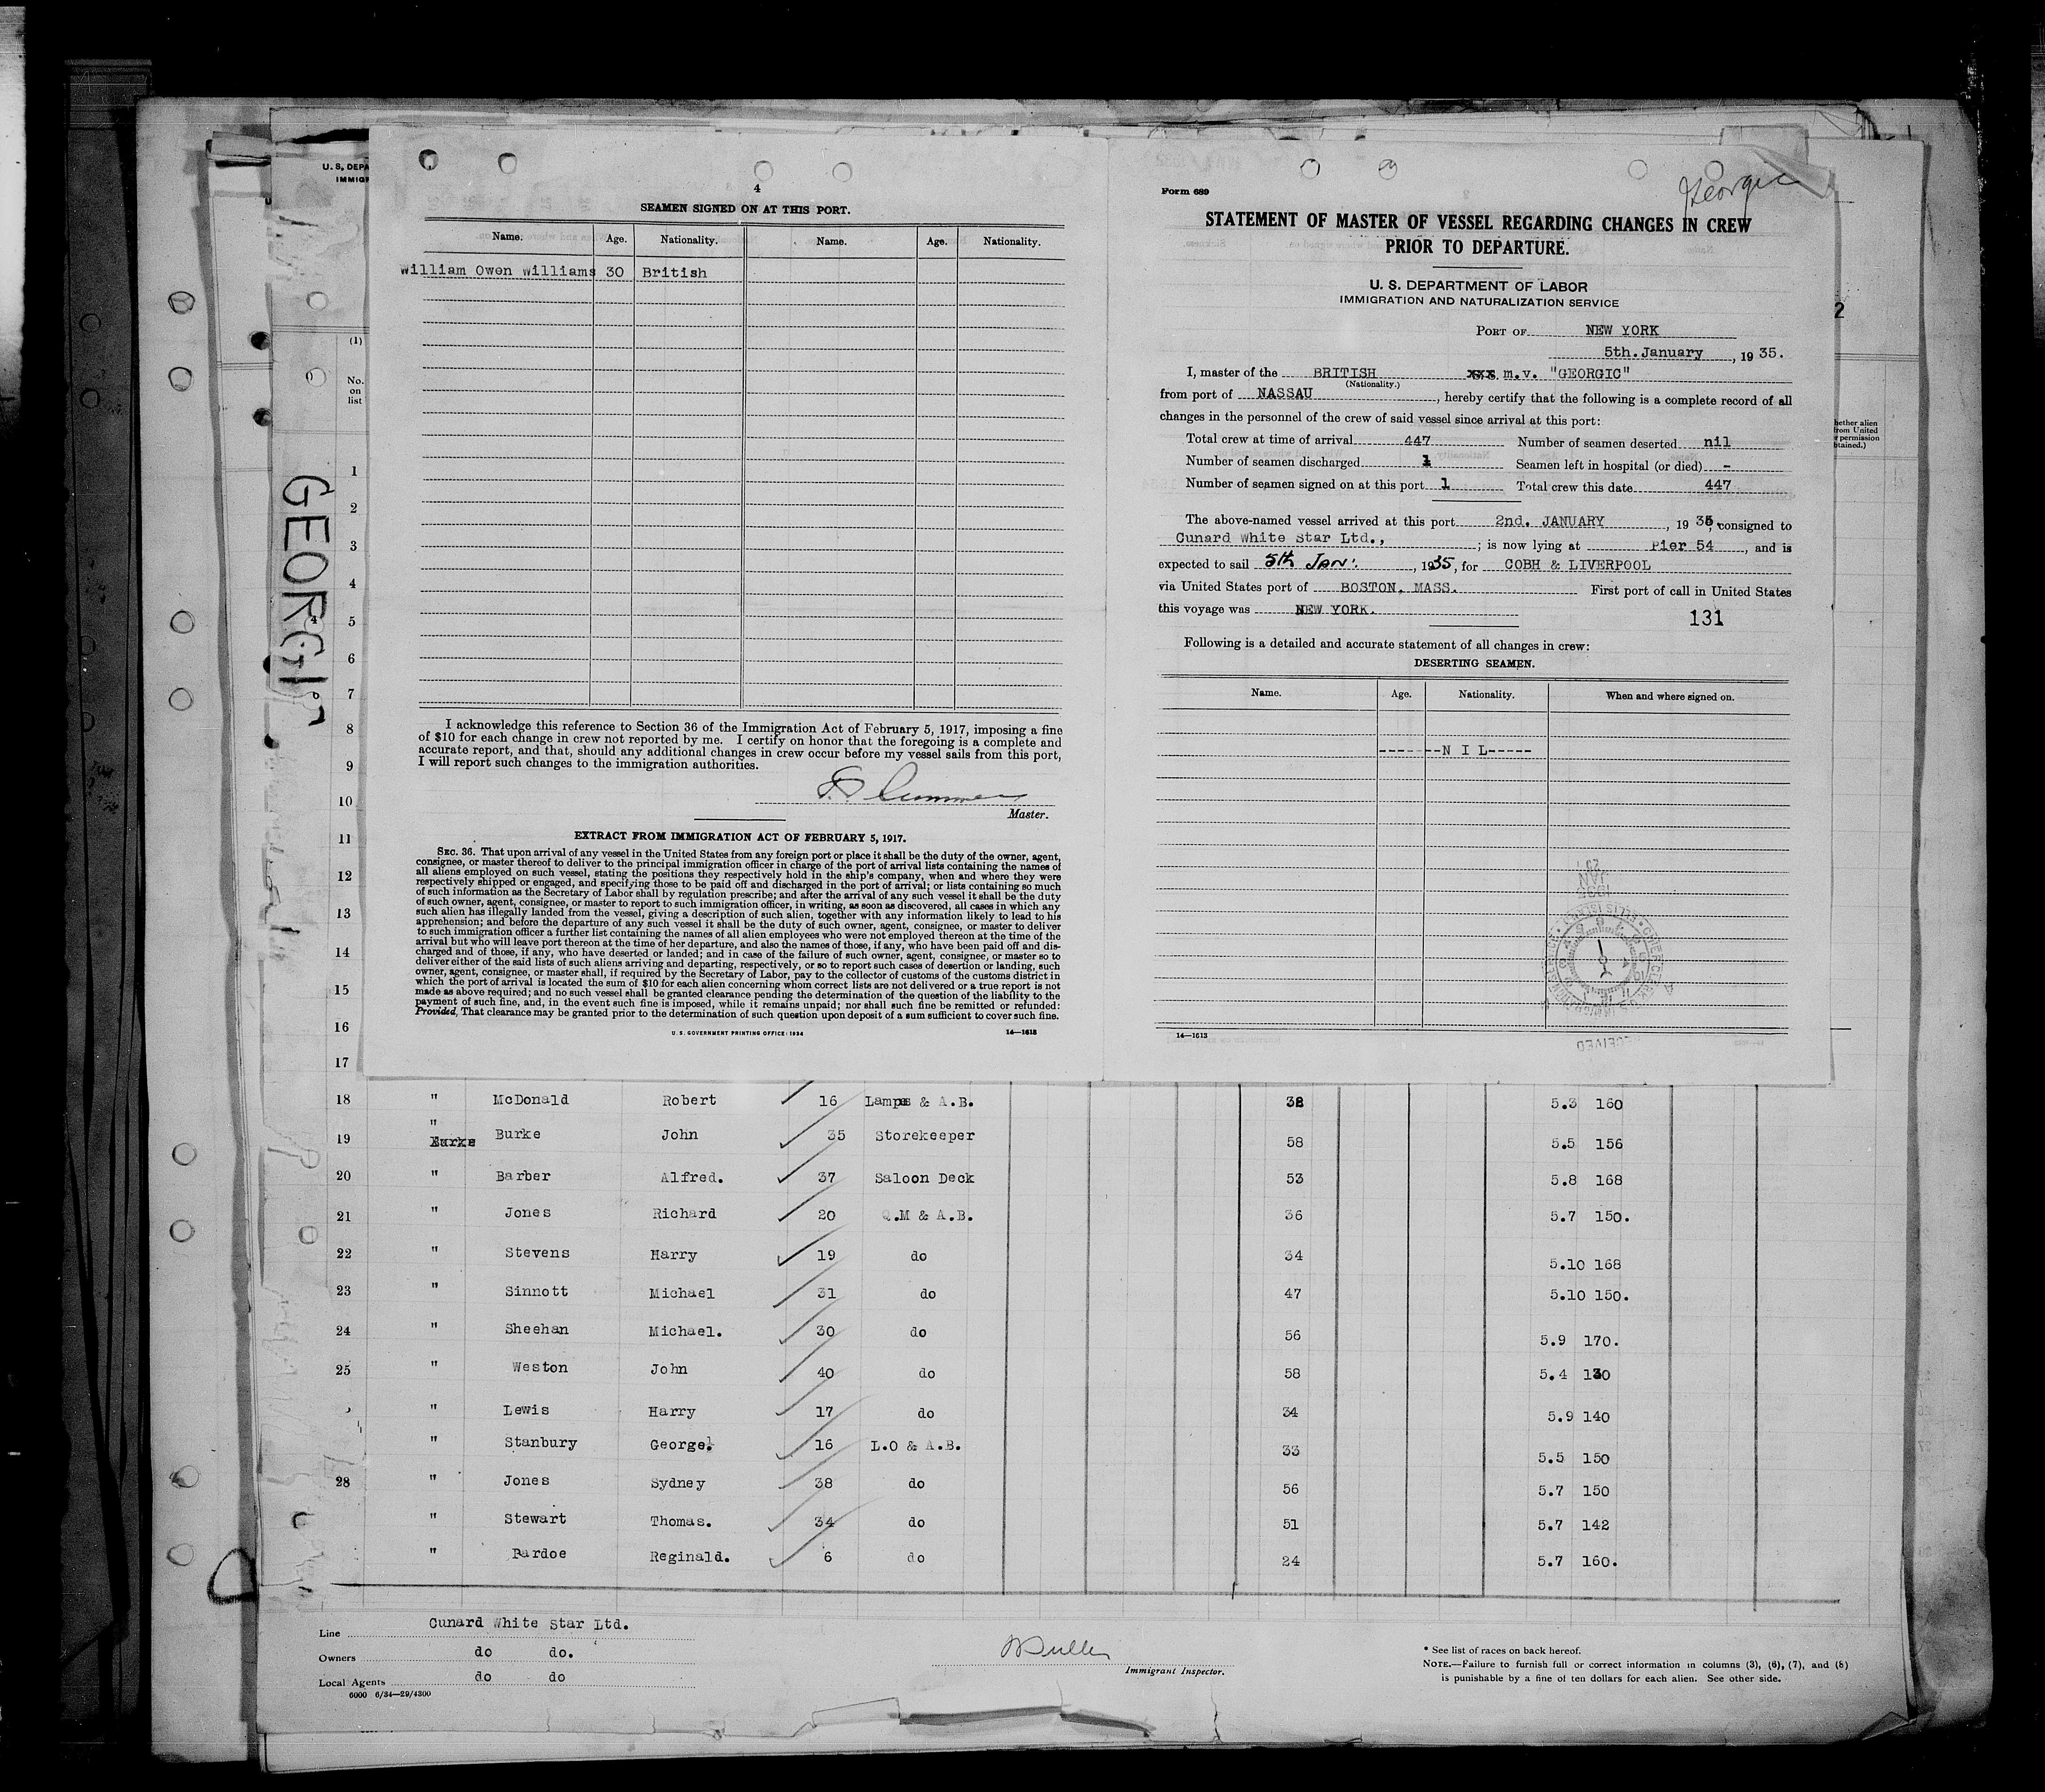 4
SEAMEN SIGNED ON AT THIS PORT.
Name. Age. Nationality. Name. Age. Nationality.
William Owen Williams 30 British
I acknowledge this reference to Section 36 of the Immigration Act of February 5, 1917, imposing a fine
of $10 for each change in crew not reported by me. I certify on honor that the foregoing is a complete and
accurate report, and that, should any additional changes in crew occur before my vessel sails from this port,
I will report such changes to the immigration authorities.
Master.
EXTRACT FROM IMMIGRATION ACT OF FEBRUARY 5, 1917.
SEC. 36. That upon arrival of any vessel in the United States from any foreign port or place it shall be the duty of the owner, agent,
consignee, or master thereof to deliver to the principal immigration officer in charge of the port of arrival lists containing the names of
all aliens employed on such vessel, stating the positions they respectively hold in the ship's company, when and where they were
respectively shipped or engaged, and specifying those to be paid off and discharged in the port of arrival; or lists containing so much
of such information as the Secretary of Labor shall by regulation prescribe; and after the arrival of any such vessel it shall be the duty
of such owner, agent, consignee, or master to report to such immigration officer, in writing, as soon as discovered, all cases in which any
such alien has illegally landed from the vessel, giving a description of such alien, together with any information likely to lead to his
apprehension; and before the departure of any such vessel it shall be the duty of such owner, agent, consignee, or master to deliver
to such immigration officer a further list containing the names of all alien employees who were not employed thereon at the time of the
arrival but who will leave port thereon at the time of her departure, and also the names of those, if any, who have been paid off and dis-
charged and of those, if any, who have deserted or landed; and in case of the failure of such owner, agent, consignee, or master so to
deliver either of the said lists of such aliens arriving and departing, respectively, or so to report such cases of desertion or landing, such
owner, agent, consignee, or master shall, if required by the Secretary of Labor, pay to the collector of customs of the customs district in
which the port of arrival is located the sum of $10 for each alien concerning whom correct lists are not delivered or a true report is not
made as above required; and no such vessel shall be granted clearance pending the determination of the question of the liability to the
payment of such fine, and, in the event such fine is imposed, while it remains unpaid; nor shall such fine be remitted or refunded:
Provided, That clearance may be granted prior to the determination of such question upon deposit of a sum sufficient to cover such fine.
U. S. GOVERNMENT PRINTING OFFICE: 1934 14—1613
Form 689
Georgic
STATEMENT OF MASTER OF VESSEL REGARDING CHANGES IN CREW
PRIOR TO DEPARTURE.
U. S. DEPARTMENT OF LABOR
IMMIGRATION AND NATURALIZATION SERVICE
PORT OF NEW YORK
5th. January, 1935.
I, master of the BRITISH xxx m.v. "GEORGIC"
(Nationality.)
from port of NASSAU, hereby certify that the following is a complete record of all
changes in the personnel of the crew of said vessel since arrival at this port:
Total crew at time of arrival 447 Number of seamen deserted nil
Number of seamen discharged 1 Seamen left in hospital (or died) -
Number of seamen signed on at this port 1 Total crew this date 447
The above-named vessel arrived at this port 2nd. JANUARY, 1935, consigned to
Cunard White Star Ltd., ; is now lying at Pier 54, and is
expected to sail 5th Jan:, 1935, for COBH & LIVERPOOL
via United States port of BOSTON. MASS. First port of call in United States
this voyage was NEW YORK.
131
Following is a detailed and accurate statement of all changes in crew:
DESERTING SEAMEN.
Name. Age. Nationality. When and where signed on.
-------N I L-----
14—1613
RECEIVED
U. S. DEPA
IMMIGR
(1)
No.
on
list
GEORGIC
2
hether alien
from United
permission
tained.)
1
2
3
4
5
6
7
8
9
10
11
12
13
14
15
16
17
18 " McDonald Robert 16 Lamps & A.B. 38 5.3 160
19 " Burke John 35 Storekeeper 58 5.5 156
20 " Barber Alfred. 37 Saloon Deck 53 5.8 168
21 " Jones Richard 20 Q.M & A.B. 36 5.7 150.
22 " Stevens Harry 19 do 34 5.10 168
23 " Sinnott Michael 31 do 47 5.10 150.
24 " Sheehan Michael. 30 do 56 5.9 170.
25 " Weston John 40 do 58 5.4 130
" Lewis Harry 17 do 34 5.9 140
" Stanbury George. 16 L.O & A.B. 33 5.5 150
28 " Jones Sydney 38 do 56 5.7 150
" Stewart Thomas. 34 do 51 5.7 142
" Pardoe Reginald. 6 do 24 5.7 160.
Line Cunard White Star Ltd.
Owners do do.
Local Agents do do
6000 6/34—29/4300
Immigrant Inspector.
* See list of races on back hereof.
NOTE.—Failure to furnish full or correct information in columns (3), (6), (7), and (8)
is punishable by a fine of ten dollars for each alien. See other side.